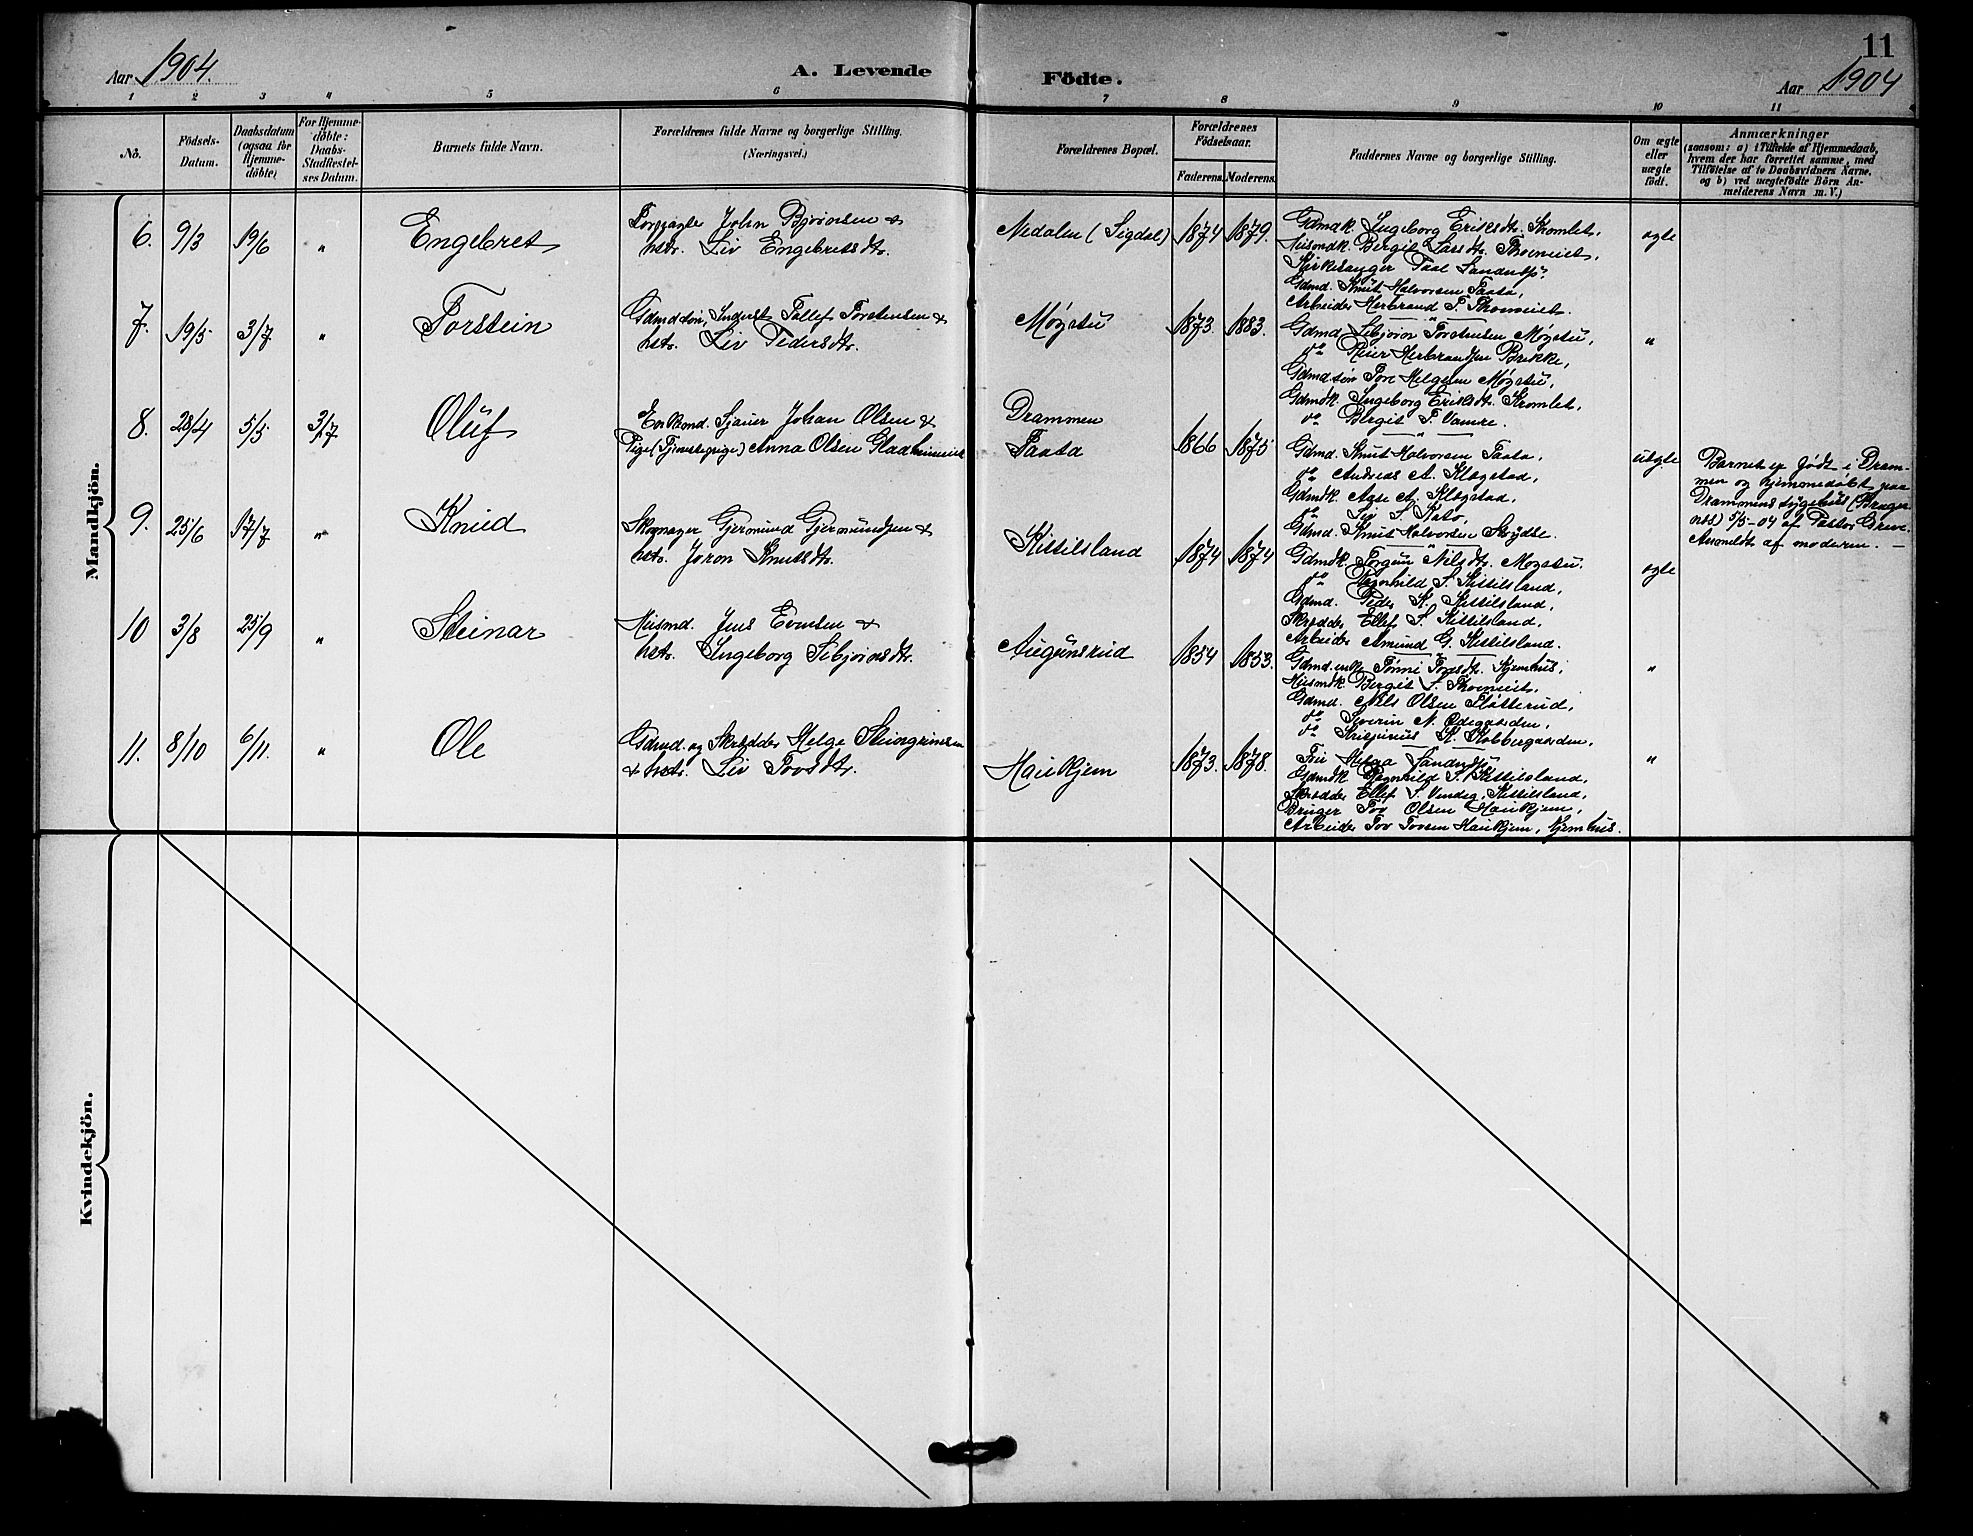 11
Aar 1904.
A. Levende Födte.
Aar 1904
1 2 3 4 5 6 7 8 9 10 11
No.
Födsels-
Datum.
Daabsdatum
(ogsaa for
Hjemme-
döbte)
For Hjemme-
döbte:
Daabs-
Stadfæstel-
ses Datum.
Barnets fulde Navn.
Forældrenes fulde Navne og borgerlige Stilling.
(Næringsvei.)
Forældrenes Bopæl.
Forældrenes
Födselsaar.
Faderens. Moderens.
Faddernes Navne og borgerlige Stilling.
Om ægte
eller
uægte
födt.
Anmærkninger
(saasom: a) i Tilfælde af Hjemmedaab,
hvem der har forrettet samme, med
Tilföielse af to Daabsvidners Navne,
og b) ved uægtefödte Börn An-
melderens Navn m. V.)
Mandkjön.
6. 9/3 19/6 " Engebret
John Bjørnsen &
hstr. Liv Engebretsdtr.
Nedalen (Sigdal) 1874 1879.
Gdmdk. Ingeborg Eriksdtr. Skomlet,
Husmdk. Bergit Larsdtr.
Kirkesanger
Gdmd. Knut Halvorsen Taata,
Arbeider Herbrand
ægte
7. 19/5 3/7 " Torstein
Gdmdsøn, Inderst Tollef Torstensen &
hstr. Liv Pedersdtr.
Møgstu 1873. 1883.
Gdmd. Sebjørn Torstensen Møgstu,
do Reier Herbrandsen Brekke,
Gdmdsøn Tore Helgesen Møgstu,
Gdmdk. Ingeborg Eriksdt. Skomlet,
do Bergit
"
8. 28/4 5/5 3/7 Oluf
Enkemd. Sjauer Johan Olsen &
Pige (Tjenestepige) Anna Olsen
Drammen
Taata
1866 1875
Gdmd. Knut Halvorsen Taata,
do Andreas A. Klægstad,
Gdmdk. Aase A. Klægstad,
do Siv S.
Gdmd. Knut Halvorsen
uægte
Barnet er født i Dram-
men og hjemmedøbt paa
Drammens sygehus (Brager-
nes) 5/5-04 af Pastor
Anmeldt af moderen. —
9. 25/6 17/7 " Knud
Skomager Gjermund Gjermundsen &
hstr. Jøron Knutsdtr.
Kittilsland 1874 1874
Gdmdk. Torgun Nilsdtr. Møgstu.
do Ragnhild S. Kittilsland,
Gdmd. Peder K. Kittilsland,
Skrædder Ellef S. Kittilsland,
Arbeider Amund G. Kittilsland.
ægte
10 3/8 25/9 " Steinar
Husmd. Jens Evensen &
hstr. Ingeborg Sebjørnsdtr.
Augunsrud 1854 1853.
Gdmd.enke Tønni Torsdtr. Hjemhus,
Husmdk. Bergit S.
Gdmd. Nils Olsen Sløtterud,
do Severin N. Ødegaarden,
do K. Kobbergaarden.
"
11. 8/10 6/11. " Ole
Gdmd. og Skrædder Helge Steingrimsen
& hstr. Liv Tovsdtr.
Haukjem 1873. 1878.
Fru Helga
Gdmdk. Ragnhild S. Kittilsland,
Skrædder Ellef S. Kittilsland,
Bruger Tov Olsen Haukjem,
Arbeider Tov Tovsen Haukjem, Hjemhus.
"
Kvindekjön.